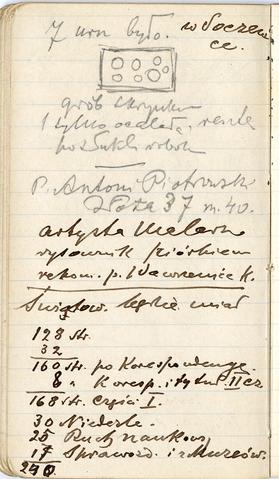 7 urn było. w Soczew
ce.
grób skrzynk
1 tylko ocalała, reszta
potłukli robotn
P. Antoni Piotrowski
Złota 37 m. 40.
artysta Malarz
rysownik piórkiem
rekom. p. Wawrzeniecki K.
Światow. będzie miał
128 str.
32
160 str. po Korespondencyę.
8 " Koresp. i tytuł II cz
168 str. części I.
30 Niederle.
25 Ruch naukow
17 Sprawozd. i z Muzeów.
240